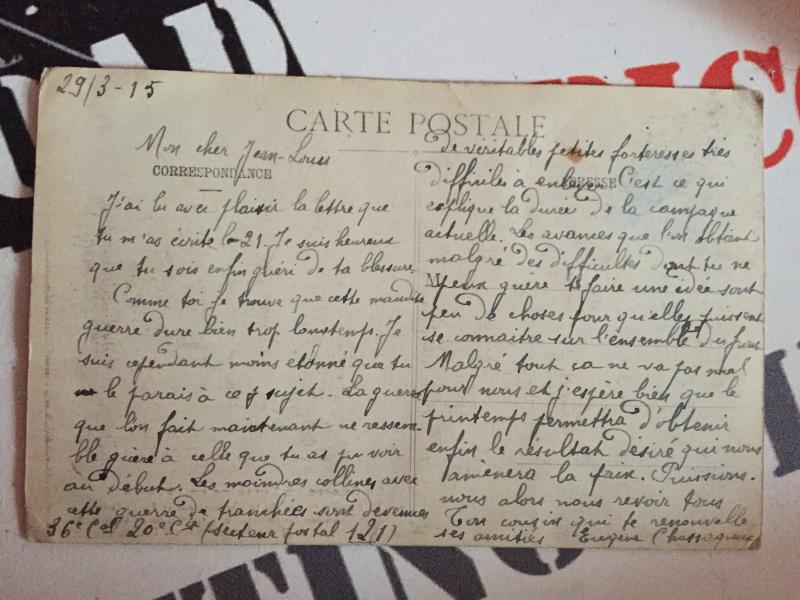 29/3-15
CARTE POSTALE
CORRESPONDANCE
ADRESSE
Mon cher Jean-Louis
J'ai lu avec plaisir la lettre que
tu m'as écrite le 21. Je suis heureux
que tu sois enfin guéri de ta blessure.
Comme toi je trouve que cette maudite
guerre dure bien trop longtemps. Je
suis cependant moins étonné que tu
le parais à ce sujet. La guerre
que l'on fait maintenant ne ressem
ble guère à celle que tu as pu voir
au début. Les moindres collines avec
cette guerre de tranchées sont devenues
de veritables petites forteresses très
difficiles à enlever. C'est ce qui
explique la durée de la campagne
actuelle. Les avances que l'on obtient
malgré des difficultés dont tu ne
peux guère te faire une idée sont
peu de choses pour qu'elles puissent
se connaitre sur l'ensemble du front
Malgré tout ça ne va pas mal
pour nous et j'espère bien que le
printemps permettra d'obtenir
enfin le résultat désiré qui nous
amènera la paix. Puissions-
nous alors nous revoir tous
Ton cousin qui te renouvelle
ses amitiés Eugène
36e Cal 20e Cie (secteur postal 121)